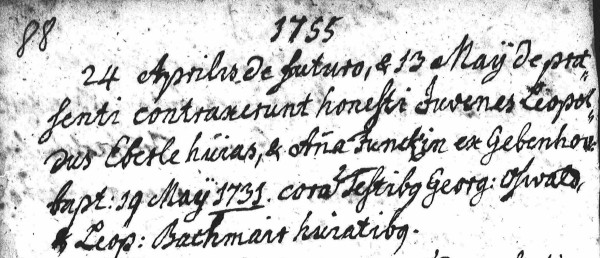 88
1755
24 Aprilis de futuro, & 13 Maÿ de præ¬
senti contraxerunt honesti Juvenes Leopol¬
dus Eberle huias, & Aña Funckin ex Gebenhou¬
bapt: 19 Maÿ 1731. corã Testibq Georg: Oswald,
& Leop: Bathmair huiatibq.